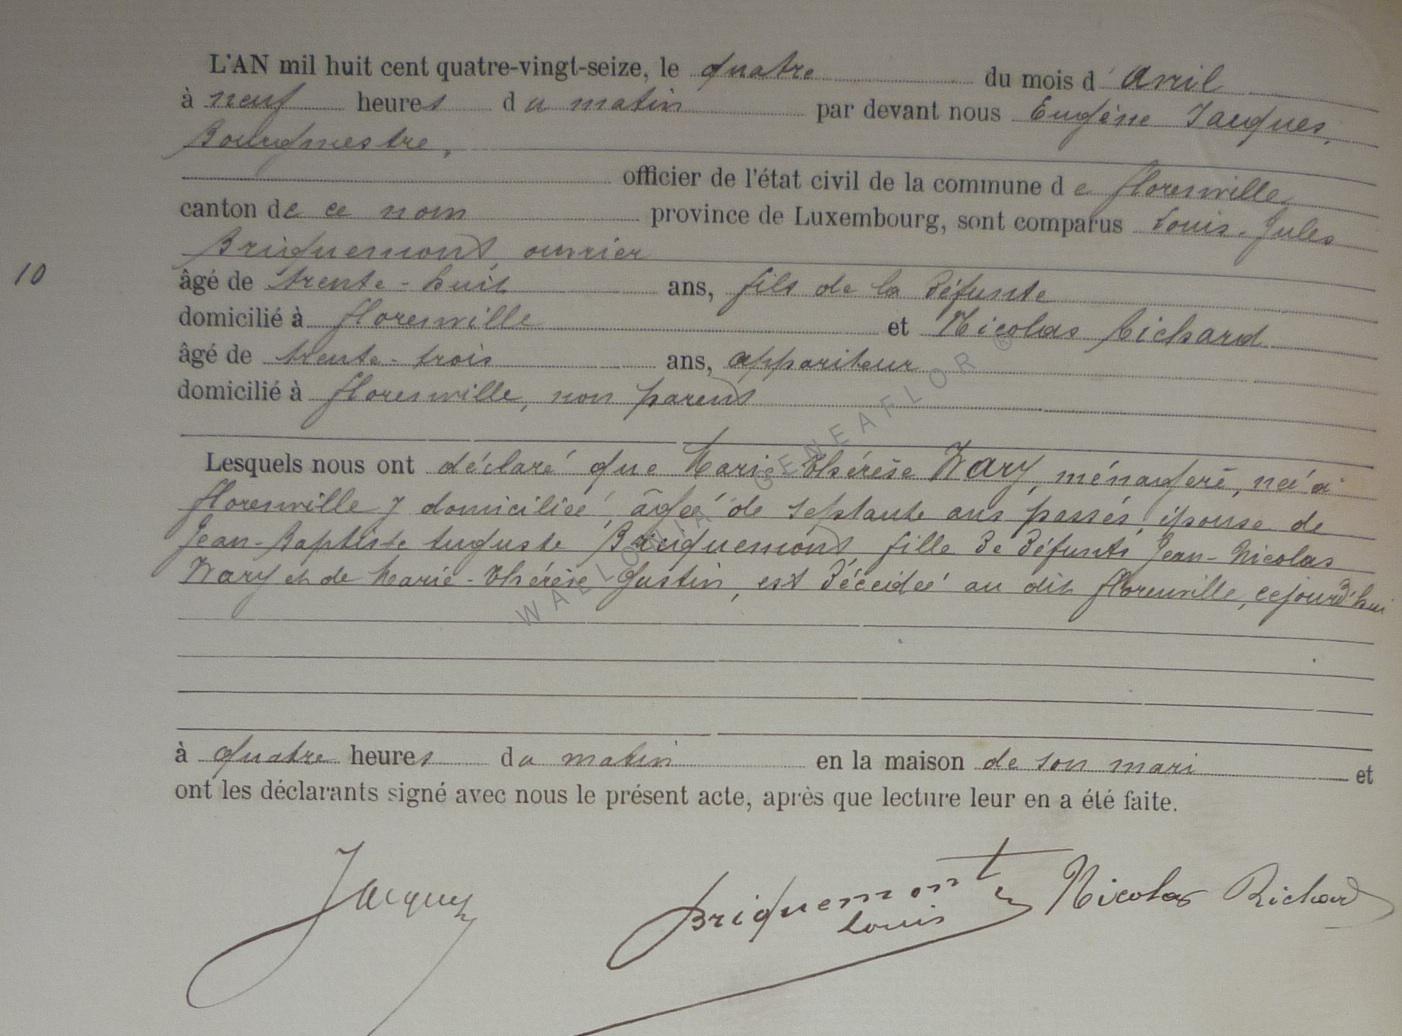 L'AN mil huit cent quatre-vingt-seize, le quatre du mois d'avril
à neuf heures du matin par devant nous Eugène Jacques,
Bourgmestre,
officier de l'état civil de la commune de florenville,
canton de ce nom province de Luxembourg, sont comparus Louis-Jules
Briquemont, ouvrier
10
âgé de trente-huit ans, fils de la défunte
domicilié à florenville et Nicolas Richard
âgé de trente-trois ans, appariteur
domicilié à florenville, non parent
Lesquels nous ont déclaré que Marie-Thérèse Wary, ménagère, née à
florenville y domiciliée, âgée de septante ans passés, épouse de
Jean-Baptiste Auguste Briquemont, fille de défunts Jean-Nicolas
Wary et de Marie-Thérèse Gustin, est décédée au dit florenville, cejourd'hui
à quatre heures du matin en la maison de son mari et
ont les déclarants signé avec nous le présent acte, après que lecture leur en a été faite.
Jacques
Briquemont Nicolas Richard
Louis
WALLONIA GENEAFLOR ©